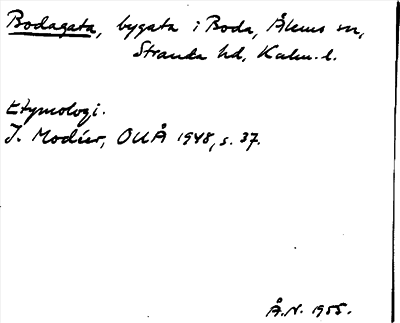 Bodagata, bygata i Boda, Ålems sn,
Stranda hd, Kalm. l.
Etymologi.
I. Modéer, OUÅ 1948, s. 37.
Å.N. 1955.